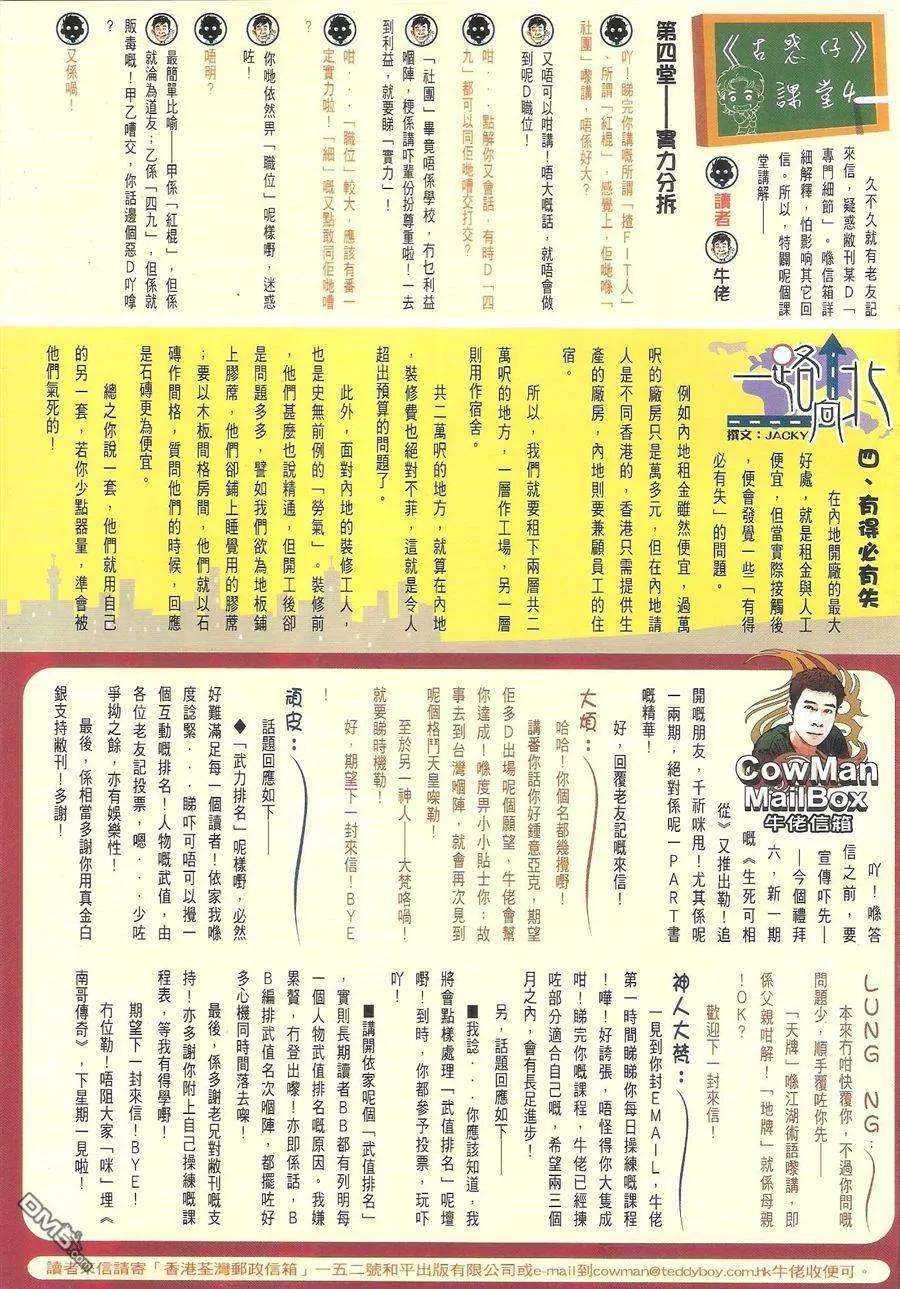 《古惑仔》
課堂4
讀者
牛佬
久不久就有老友記
來信，疑惑敝刊某D「
專門細節」。喺信箱詳
細解釋，怕影響其它回
信。所以，特闢呢個課
堂講解——
第四堂——實力分拆
吖！睇完你講嘅所謂「揸FIT人」
、所謂「紅棍」，感覺上，佢哋喺「
社團」嚟講，唔係好大？
又唔可以咁講！唔大嘅話，就唔會做
到呢D職位！
咁．．．點解你又會話，有時D「四
九」都可以同佢哋嘈交打交？
「社團」畢竟唔係學校，冇乜利益
嗰陣，梗係講吓輩份扮尊重啦！一去
到利益，就要睇「實力」！
咁．．．「職位」較大，應該有番一
定實力啦！「細」嘅又點敢同佢哋嘈
？
你哋依然畀「職位」呢樣嘢，迷惑
咗！
唔明？
最簡單比喻——甲係「紅棍」，但係
就淪為道友；乙係「四九」，但係就
販毒嘅！甲乙嘈交，你話邊個惡D吖嗱
？
又係喎！
一路向北
撰文：JACKY
四、有得必有失
在內地開廠的最大
好處，就是租金與人工
便宜，但當實際接觸後
，便會發覺一些「有得
必有失」的問題。
例如內地租金雖然便宜，過萬
呎的廠房只是萬多元，但在內地請
人是不同香港的，香港只需提供生
產的廠房，內地則要兼顧員工的住
宿。
所以，我們就要租下兩層共二
萬呎的地方，一層作工場，另一層
則用作宿舍。
共二萬呎的地方，就算在內地
，裝修費也絕對不菲，這就是令人
超出預算的問題了。
此外，面對內地的裝修工人，
也是史無前例的「勞氣」。裝修前
，他們甚麼也說精通，但開工後卻
是問題多多，譬如我們欲為地板鋪
上膠蓆，他們卻鋪上睡覺用的膠蓆
；要以木板間格房間，他們就以石
磚作間格，質問他們的時候，回應
是石磚更為便宜。
總之你說一套，他們就用自己
的另一套，若你少點器量，準會被
他們氣死的！
CowMan
MailBox
牛佬信箱
吖！喺答
信之前，要
宣傳吓先—
—今個禮拜
六，新一期
嘅《生死可相
從》又推出勒！追
開嘅朋友，千祈咪甩！尤其係呢
一兩期，絕對係呢一PART書
嘅精華！
好，回覆老友記嘅來信！
大煩：
哈哈！你個名都幾攪嘢！
講番你話你好鍾意亞克，期望
佢多D出場呢個願望，牛佬會幫
你達成！喺度畀小小貼士你：故
事去到台灣嗰陣，就會再次見到
呢個格鬥天皇㗎勒！
至於另一神人——大梵咯喎！
就要睇時機勒！
好，期望下一封來信！BYE
！
頑皮：
話題回應如下——
◆「武力排名」呢樣嘢，必然
好難滿足每一個讀者！依家我喺
度諗緊．．．睇吓可唔可以攪一
個互動嘅排名！人物嘅武值，由
各位老友記投票，嗯．．．少咗
爭拗之餘，亦有娛樂性！
最後，係相當多謝你用真金白
銀支持敝刊！多謝！
LUNG NG：
本來冇咁快覆你，不過你問嘅
問題少，順手覆咗你先——
「天牌」喺江湖術語嚟講，即
係父親咁解！「地牌」就係母親
！OK？
歡迎下一封來信！
神人大梵：
一見到你封EMAIL，牛佬
第一時間睇睇你每日操練嘅課程
！嘩！好誇張，唔怪得你大隻成
咁！睇完你嘅課程，牛佬已經揀
咗部分適合自己嘅，希望兩三個
月之內，會有長足進步！
另，話題回應如下——
■我諗．．．你應該知道，我
將會點樣處理「武值排名」呢壇
嘢！到時，你都參予投票，玩吓
吖！
■講開依家呢個「武值排名」
，實則長期讀者BB都有列明每
一個人物武值排名嘅原因。我嫌
累贅，冇登出嚟！亦即係話，B
B編排武值名次嗰陣，都擺咗好
多心機同時間落去㗎！
最後，係多謝老兄對敝刊嘅支
持！亦多謝你附上自己操練嘅課
程表，等我有得學嘢！
期望下一封來信！BYE！
冇位勒！唔阻大家「咪」埋《
南哥傳奇》，下星期一見啦！
讀者來信請寄「香港荃灣郵政信箱」一五二號和平出版有限公司或e-mail到cowman@teddyboy.com.hk牛佬收便可。